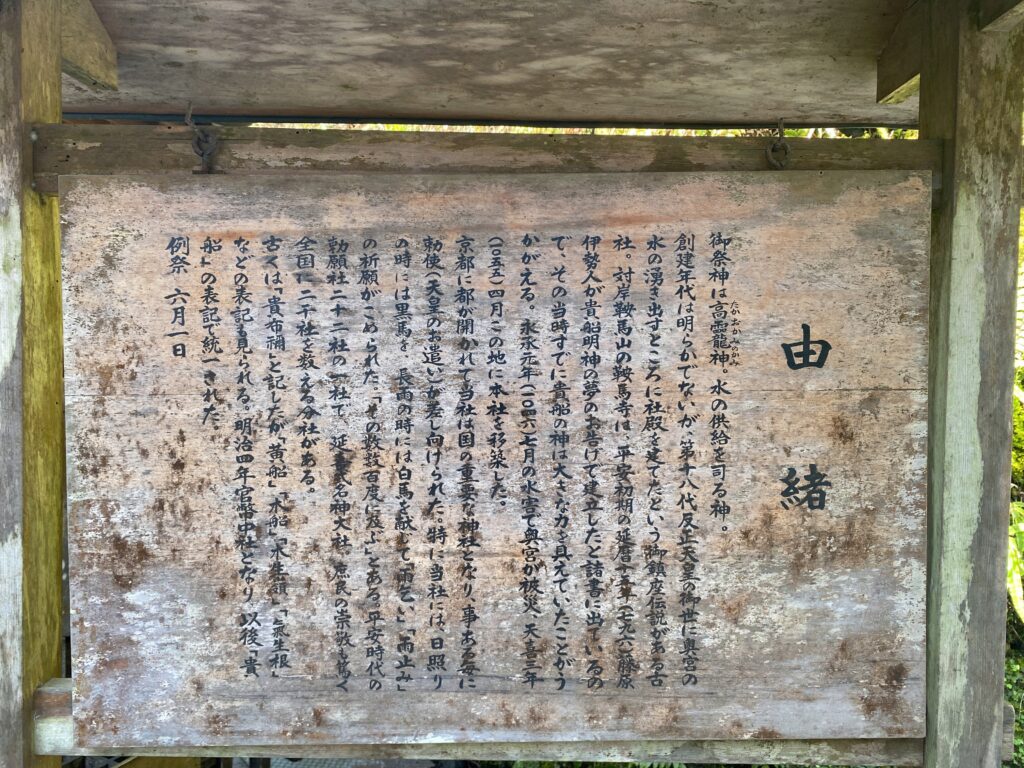 由緒
たかおかみのかみ
御祭神は高龗神。水の供給を司る神。
創建年代は明らかでないが、第十八代反正天皇の御世に奥宮の
水の湧き出すところに社殿を建てたという御鎮座伝説がある古
社。対岸鞍馬山の鞍馬寺は、平安初期の延暦十五年(七九六)藤原
伊勢人が貴船明神の夢のお告げで建立したと諸書に出ているの
で、その当時すでに貴船の神は大きな力を具えていたことがう
かがえる。永承元年(一〇四六)七月の水害で奥宮が被災、天喜三年
(一〇五五)四月この地に本社を移築した。
京都に都が開かれて当社は国の重要な神社となり、事ある毎に
勅使(天皇のお遣い)が差し向けられた。特に当社には、日照り
の時には黒馬を、長雨の時には白馬を献じて「雨乞い」「雨止み」
の祈願がこめられた。「その数数百度に及ぶ」とある。平安時代の
勅願社二十二社の一社で、延喜式名神大社、庶民の崇敬も篤く
全国に二千社を数える分社がある。
古くは「貴布禰」と記したが「黄船」「木船」「木生嶺」「氣生根」
などの表記も見られる。明治四年官幣中社となり、以後「貴
船」の表記で統一された。
例祭 六月一日